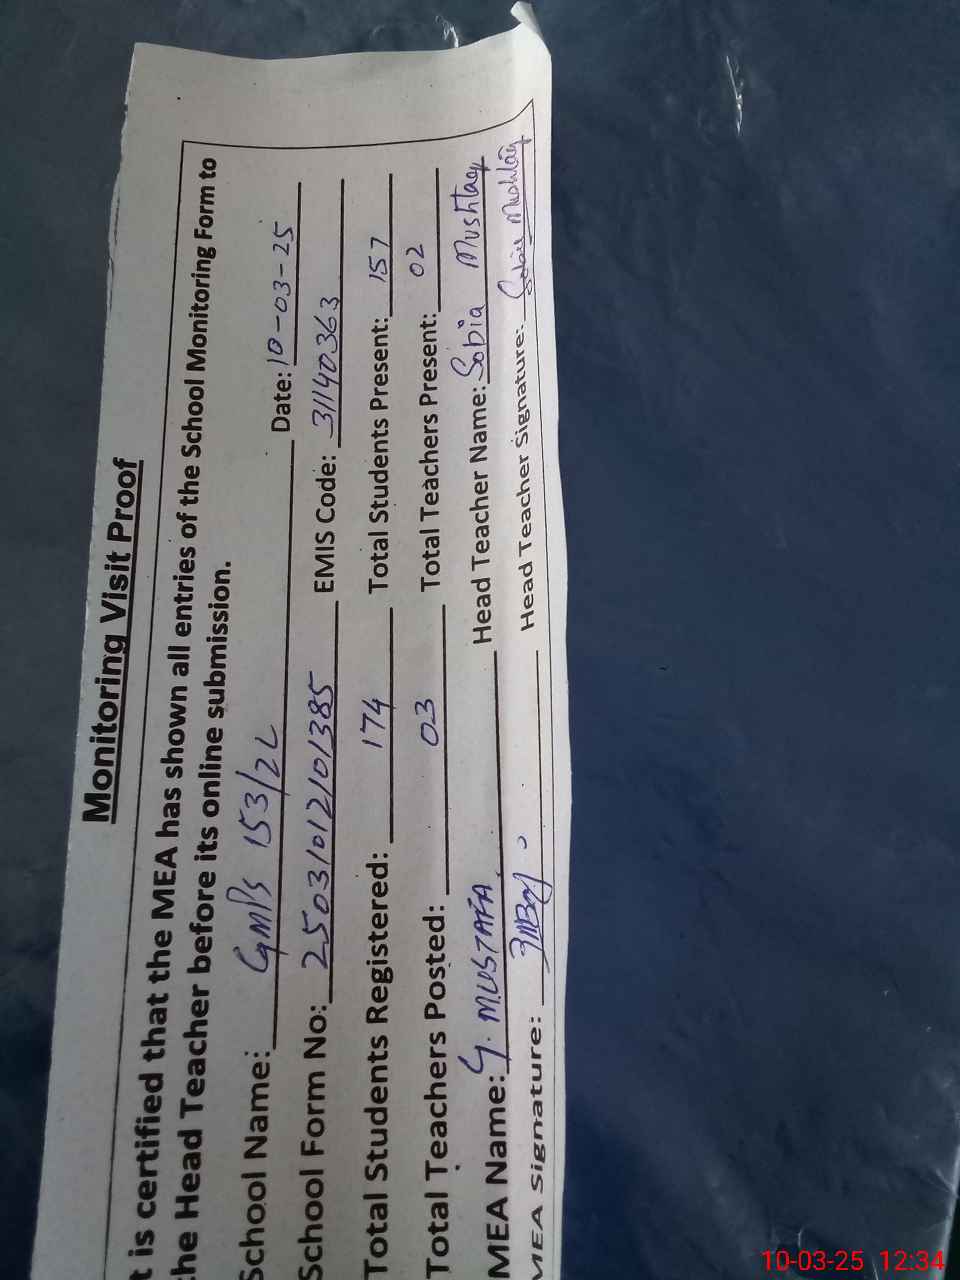 Monitoring Visit Proof
t is certified that the MEA has shown all entries of the School Monitoring Form to
the Head Teacher before its online submission.
School Name: GMPS 153/2L Date: 10-03-25
School Form No: 2503101210385 EMIS Code: 31140363
Total Students Registered: 174 Total Students Present: 157
Total Teachers Posted: 03 Total Teachers Present: 02
MEA Name: G. MUSTAFA Head Teacher Name: Sobia Mushtaq
MEA Signature: Head Teacher Signature: Sobia Mushtaq
10-03-25 12:34